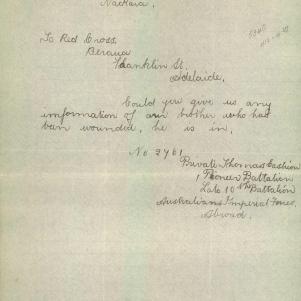 Nackara.
To Red Cross,
Franklin St.
Adelaide.
Could you give us any
imformation of our brother who has
been wounded, he is in.
No 2961
Private Thomas Cashion
1 Pioneer Battalion
Late 10th Battalion
Australians Imperial Forces.
Abroad.